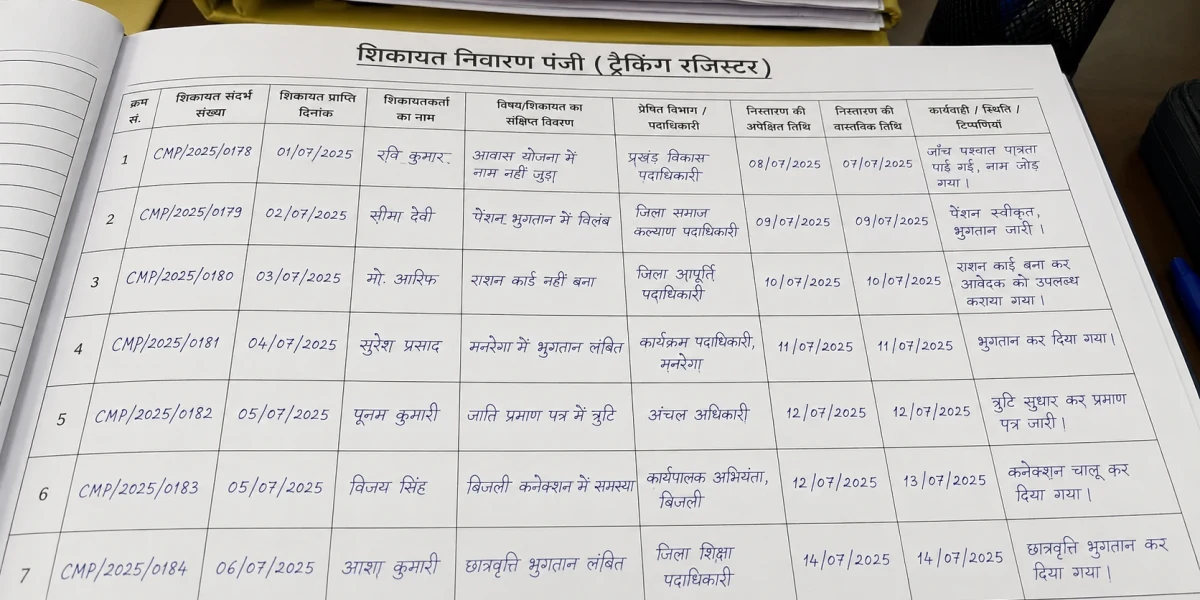 शिकायत निवारण पंजी ( ट्रैकिंग रजिस्टर )
क्रम सं. शिकायत संदर्भ संख्या शिकायत प्राप्ति दिनांक शिकायतकर्ता का नाम विषय/शिकायत का संक्षिप्त विवरण प्रेषित विभाग / पदाधिकारी निस्तारण की अपेक्षित तिथि निस्तारण की वास्तविक तिथि कार्यवाही / स्थिति / टिप्पणियाँ
1 CMP/2025/0178 01/07/2025 रवि कुमार. आवास योजना में नाम नहीं जुड़ा प्रखंड विकास पदाधिकारी 08/07/2025 07/07/2025 जाँच पश्चात पात्रता पाई गई, नाम जोड़ गया।
2 CMP/2025/0179 02/07/2025 सीमा देवी पेंशन भुगतान में विलंब जिला समाज कल्याण पदाधिकारी 09/07/2025 09/07/2025 पेंशन स्वीकृत, भुगतान जारी।
3 CMP/2025/0180 03/07/2025 मो. आरिफ राशन कार्ड नहीं बना जिला आपूर्ति पदाधिकारी 10/07/2025 10/07/2025 राशन कार्ड बना कर आवेदक को उपलब्ध कराया गया।
4 CMP/2025/0181 04/07/2025 सुरेश प्रसाद मनरेगा में भुगतान लंबित कार्यक्रम पदाधिकारी, मनरेगा 11/07/2025 11/07/2025 भुगतान कर दिया गया।
5 CMP/2025/0182 05/07/2025 पूनम कुमारी जाति प्रमाण पत्र में त्रुटि अंचल अधिकारी 12/07/2025 12/07/2025 त्रुटि सुधार कर प्रमाण पत्र जारी।
6 CMP/2025/0183 05/07/2025 विजय सिंह बिजली कनेक्शन में समस्या कार्यपालक अभियंता, बिजली 12/07/2025 13/07/2025 कनेक्शन चालू कर दिया गया।
7 CMP/2025/0184 06/07/2025 आशा कुमारी छात्रवृत्ति भुगतान लंबित जिला शिक्षा पदाधिकारी 14/07/2025 14/07/2025 छात्रवृत्ति भुगतान कर दिया गया।